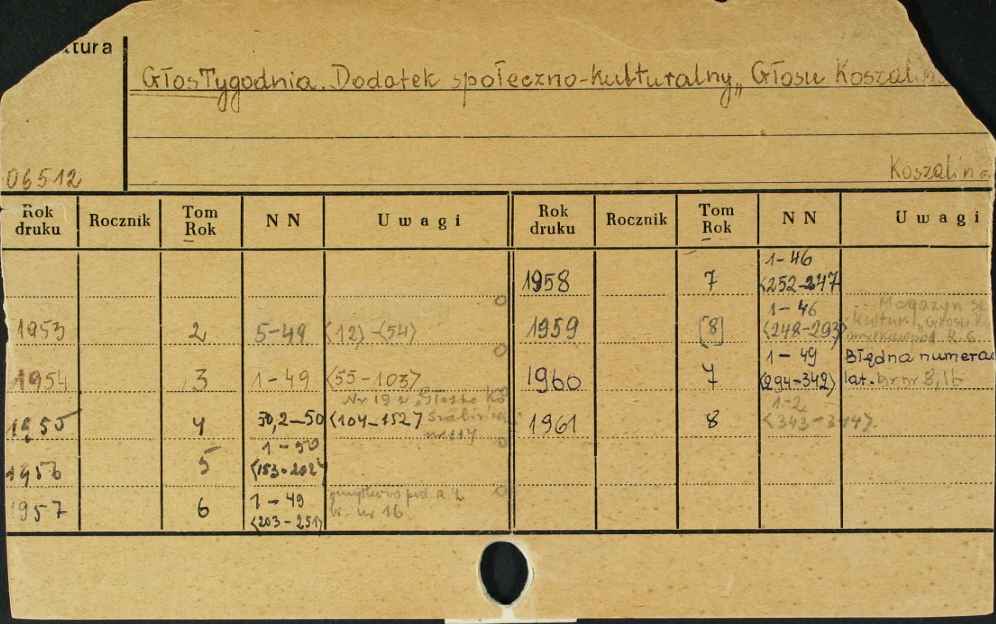 tura
Głos Tygodnia. Dodatek społeczno-kulturalny „Głosu Koszaliń
06512
Koszalin
Rok druku Rocznik Tom Rok NN Uwagi Rok druku Rocznik Tom Rok NN Uwagi
1958 7 1-46
<252-297
1953 2 5-49 <12>-<54> 1959 [8] 1-46
<248-293>
Magazyn
1954 3 1-49 <55-103> 1960 7 1-49
<294-342>
Błędna numera
lat. br nr 8, 16
Nr 19 w „Głosie
1955 4 50,2-50 <104-152> 1961 8 1-2
<343-344>.
nr 117
1956 5 1-50
<153-202>
1957 6 1-49
<203-251>
br. nr 16.